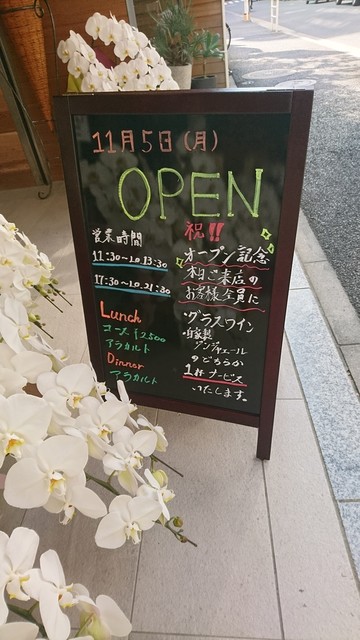 11月5日(月)
OPEN
営業時間
11:30~L.O.13:30
17:30~L.O.21:30
Lunch
コース ¥2,500
アラカルト
Dinner
アラカルト
祝!!
オープン記念
本日ご来店の
お客様全員に
・グラスワイン
・自家製
ジンジャエール
のどちらか
1杯サービス
いたします。